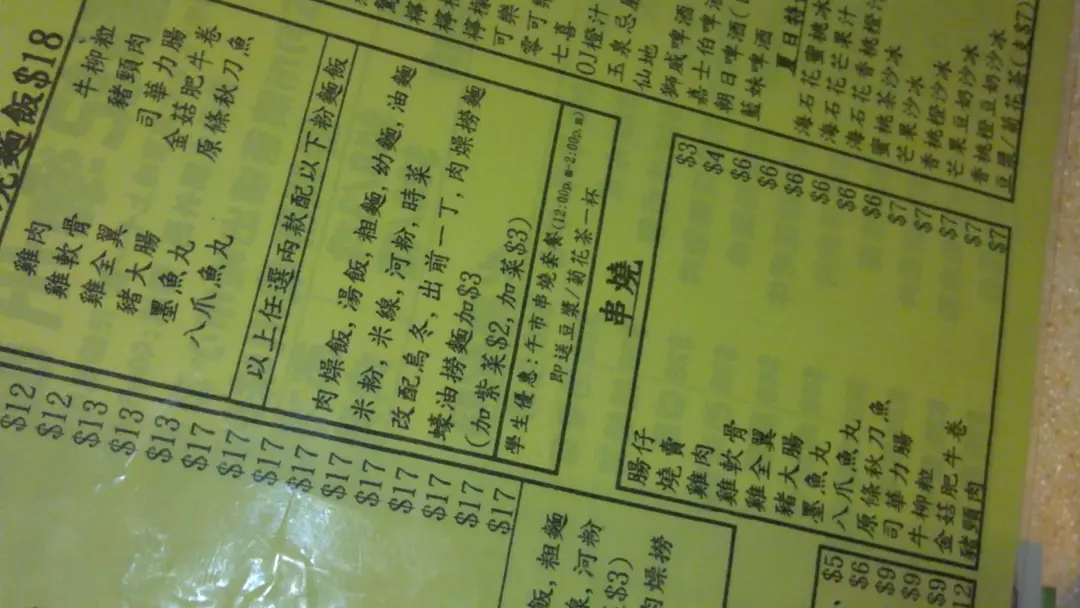 麵飯$18
雞肉 牛柳粒
雞軟骨 豬頸肉
雞全翼 司華力腸
豬大腸 金菇肥牛卷
墨魚丸 原條秋刀魚
八爪魚丸
以上任選兩款配以下粉麵飯
肉燥飯,湯飯,粗麵,幼麵,油麵
米粉,米線,河粉,時菜
改配烏冬,出前一丁,肉燥撈麵
蠔油撈麵加$3
(加紫菜$2,加菜$3)
學生優惠:午市串燒套餐(12:00p.m-2:00p.m)
即送豆漿/菊花茶一杯
串燒
腸仔 $3
燒賣 $4
雞肉 $6
雞軟骨 $6
雞全翼 $6
豬大腸 $6
墨魚丸 $6
八爪魚丸 $6
原條秋刀魚 $7
司華力腸 $7
牛柳粒 $7
金菇肥牛卷 $7
豬頸肉 $7
可樂
零可樂
七喜
OJ橙汁
五泉忌
仙地
獅威啤酒
嘉士伯啤酒
朝日啤酒
藍妹啤酒
夏日
海石花蜜桃冰
海石花芒果汁
海石花香桃橙汁
蜜桃茶沙冰
芒果沙冰
香桃橙沙冰
芒果豆奶沙冰
香桃橙豆奶沙冰
豆漿/菊花茶($7)
$12
$12
$13
$13
$13
$17
$17
$17
$17
$17
$17
$17
$17
$17
$17
飯,粗麵
線,河粉
$3)
肉燥撈
$5
$6
$9
$9
$9
12